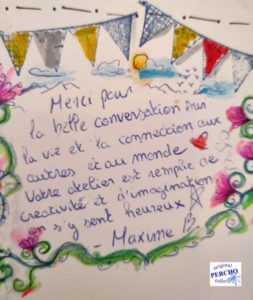 Merci pour
la belle conversation sur
la vie et la connection aux
autres et au monde
Votre atelier est remplie de
creativité et d'imagination
s'y sent heureux
- Maxime B
original
PERCUO
collectif